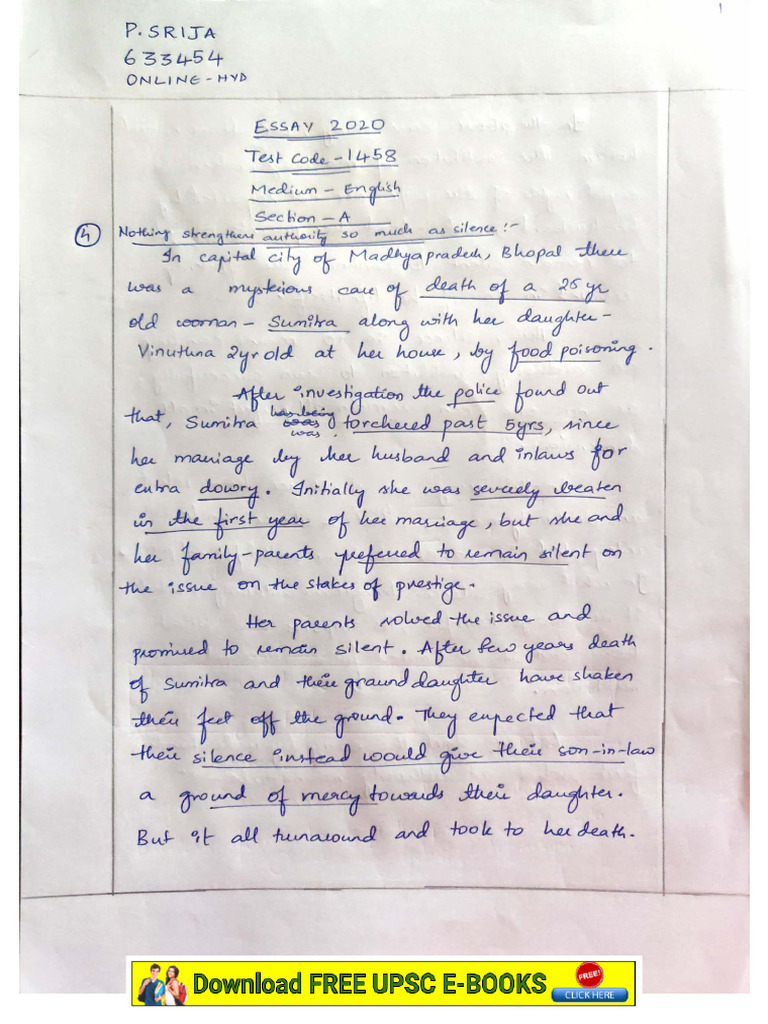 1
P. SRIJA
633454
ONLINE - HYD
ESSAY 2020
Test Code - 1458
Medium - English
Section - A
4 Nothing strengthens authority so much as silence :-
In capital city of Madhyapradesh, Bhopal there
was a mysterious case of death of a 26 yr
old woman - Sumitra along with her daughter -
Vinuthna 2yr old at her house, by food poisoning.
After investigation the police found out
has being
that, Sumitra was torchered past 5yrs, since
was
her marriage by her husband and inlaws for
extra dowry. Initially she was severely beaten
in the first year of her marriage, but she and
her family-parents preferred to remain silent on
the issue on the stakes of prestige.
Her parents solved the issue and
promised to remain silent. After few years death
of Sumitra and their graund daughter have shaken
their feet off the ground. They expected that
their silence instead would give their son-in-law
a ground of mercy towards their daughter.
But it all turnaround and took to her death.
Download FREE UPSC E-BOOKS
FREE!
CLICK HERE